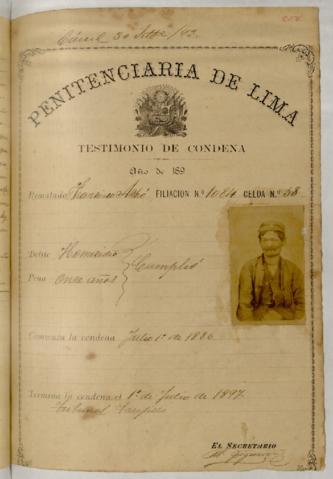 Cárcel 30 Set /92.
PENITENCIARIA DE LIMA
TESTIMONIO DE CONDENA
Año de 189
Rematado FILIACION N.º 1084 CELDA N.º 58
Delito Homicidio
Cumplió
Pena once años
Comienza la condena Julio 1º de 1886.
Termina la condena el 1º de Julio de 1897.
Tribunal
EL SECRETARIO